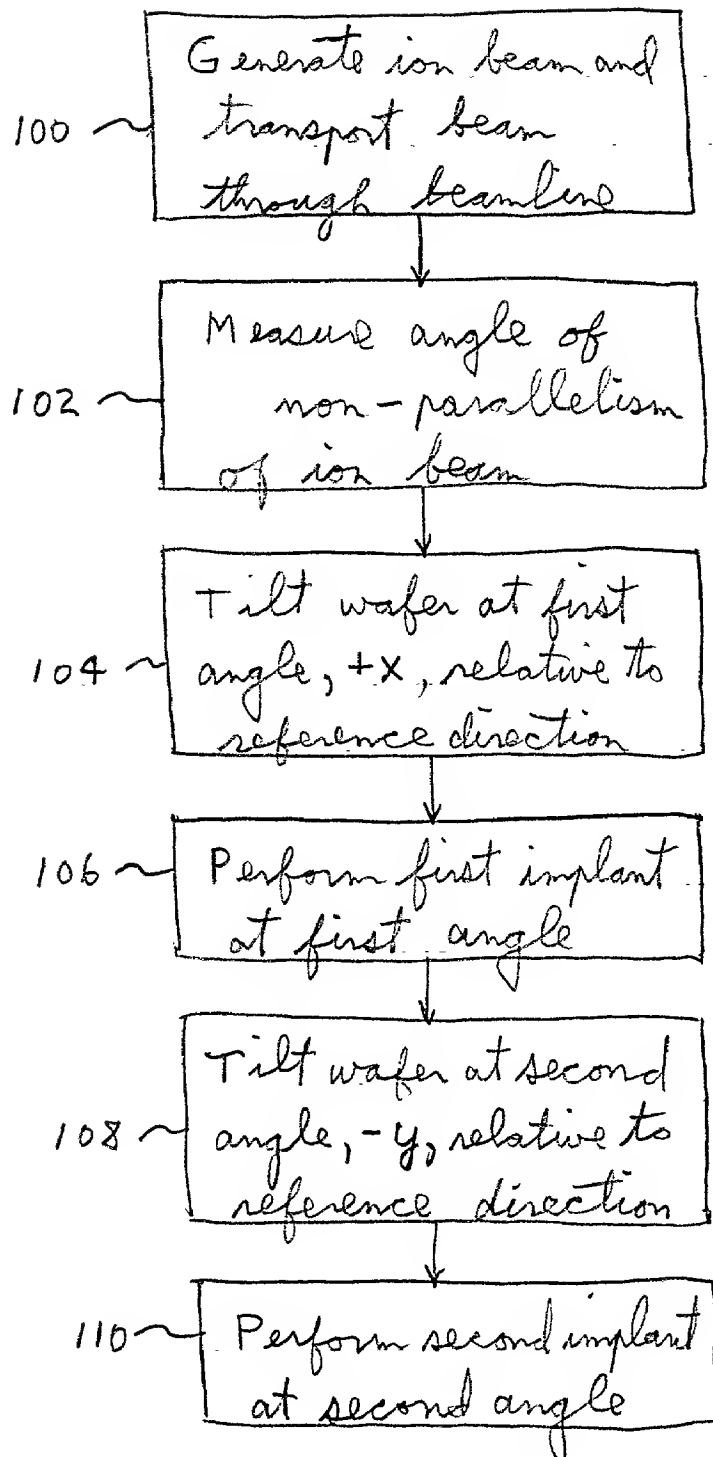 Generate ion beam and
100 transport beam
through beamline
Measure angle of
102 non-parallelism
of ion beam
Tilt wafer at first
104 angle, +x, relative to
reference direction
106 Perform first implant
at first angle
Tilt wafer at second
108 angle, -y, relative to
reference direction
110 Perform second implant
at second angle